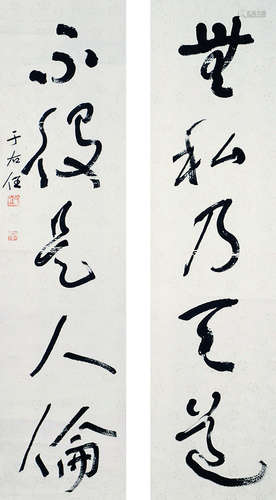 無私乃天道
不役是人倫
于右任